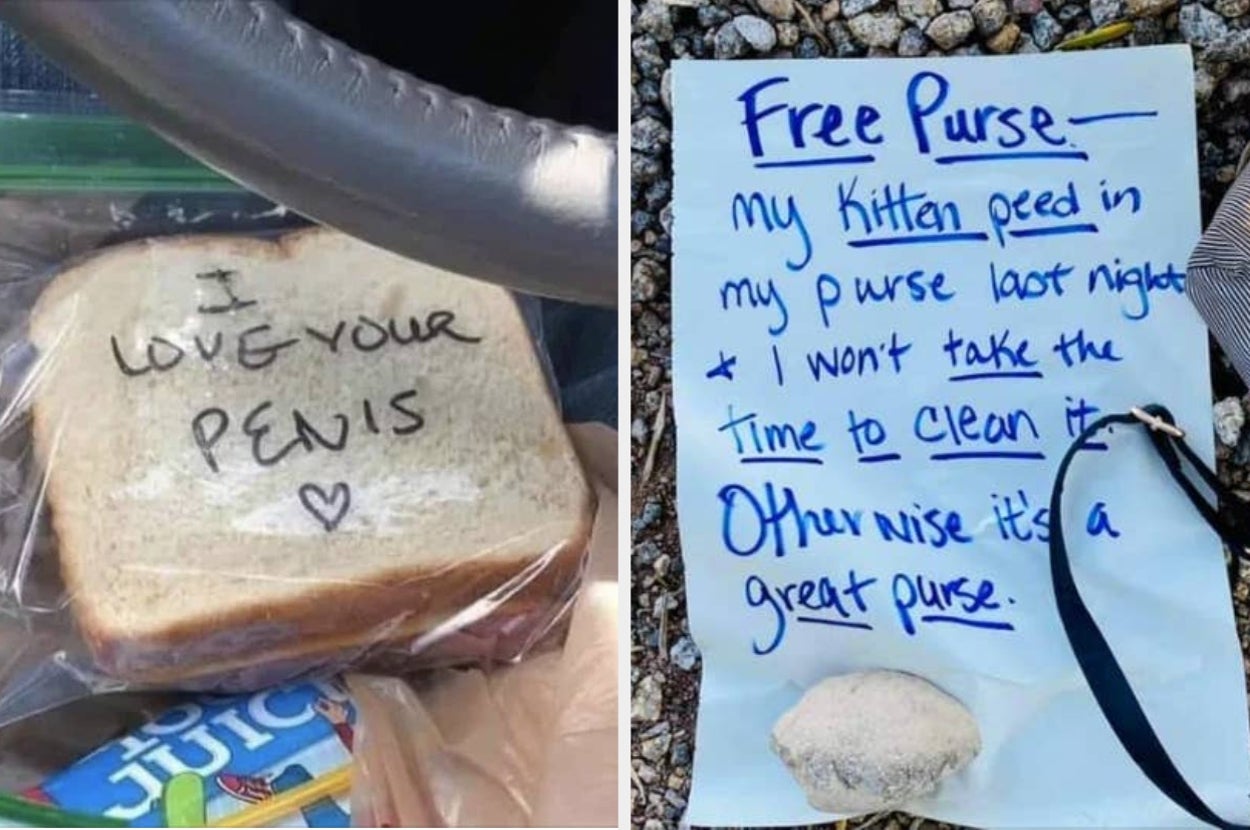 I
LOVE YOUR
PENIS
♡
JUIC
Free Purse —
my Kitten peed in
my purse last night
+ I won't take the
time to clean it.
Otherwise it's a
great purse.